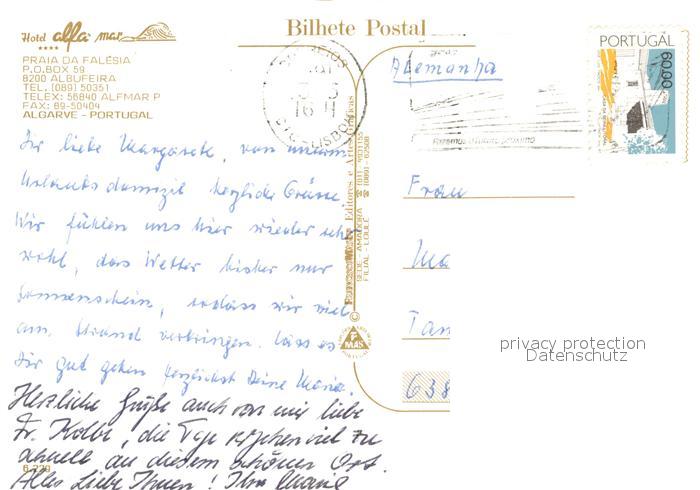 Hotel alfa mar
****
PRAIA DA FALÉSIA
P.O.BOX 59
8200 ALBUFEIRA
TEL. (089) 50351
TELEX: 56840 ALFMAR P
FAX: 69-50404
ALGARVE - PORTUGAL
Bilhete Postal
PORTUGAL
60.00
Alemanha
Frau
Ma
Tan
638
Dir liebe Margarete, von unserem
Urlaubsdomizil herzliche Grüsse.
Wir fühlen uns hier wieder sehr
wohl, das Wetter bisher nur
Sonnenschein, sodass wir viel
am Strand verbringen. Lass es
Dir gut gehen herzlichst Deine Maria.
Herzliche Grüße auch von mir liebe
Fr. Kolbe, die Tage viel zu
schnell an diesem schönen Ort.
Alles Liebe Ihnen! Ihre
6.220
Editores e Artes Gráficas
SEDE - AMADORA
FILIAL - LOULÉ
FMAS
privacy protection
Datenschutz